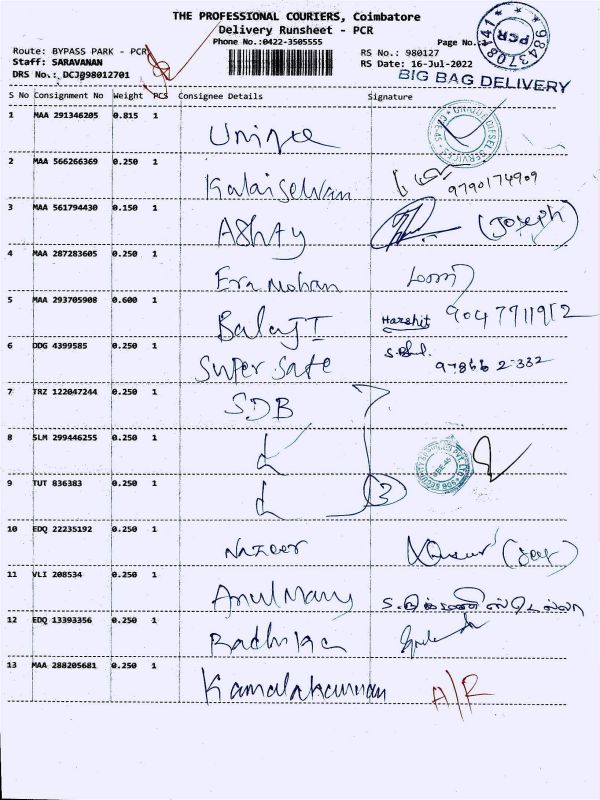 THE PROFESSIONAL COURIERS, Coimbatore
Delivery Runsheet - PCR
Phone No.:0422-3505555
Page No.
Route: BYPASS PARK - PCR
RS No.: 980127
Staff: SARAVANAN
RS Date: 16-Jul-2022
DRS No.: DCJ098012701
9843708141
PCR
BIG BAG DELIVERY
S No Consignment No Weight PCS Consignee Details Signature
1 MAA 291346205 0.815 1 Unique
2 MAA 566266369 0.250 1 Kalaiselvan 9790174909
3 MAA 561794430 0.150 1 Ashty (Joseph)
4 MAA 287283605 0.250 1 Era Mohan
5 MAA 293705908 0.600 1 Balaji Harshit 9047711912
6 DDG 4399585 0.250 1 Super Safe
7 TRZ 122047244 0.250 1 SDB
8 SLM 299446255 0.250 1
9 TUT 836383 0.250 1 3
10 EDQ 22235192 0.250 1 Nazeer
11 VLI 208534 0.250 1 Arul Mary
12 EDQ 13393356 0.250 1 Radhika
13 MAA 288205681 0.250 1 Kamalakannan A/R